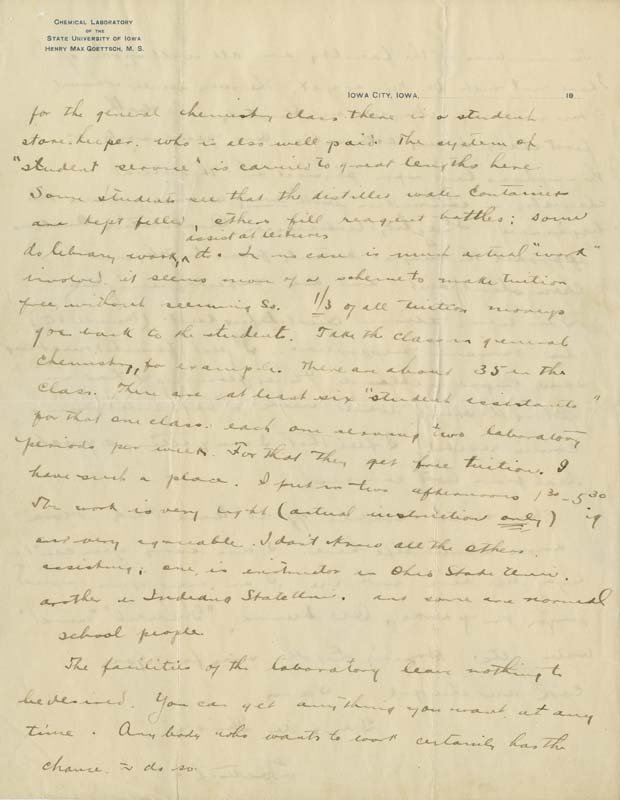 CHEMICAL LABORATORY
OF THE
STATE UNIVERSITY OF IOWA
HENRY MAX GOETTSCH, M. S.
IOWA CITY, IOWA, 19
for the general chemistry class there is a student
storekeeper, who is also well paid. The system of
"student service" is carried to great lengths here
Some students see that the distilled water containers
are kept filled, others fill reagent bottles; some
assist at lectures
do library work, etc. In no case is much actual "work"
involved it seems more of a scheme to make tuition
free without seeming so. 1/3 of all tuition moneys
goes back to the students. Take the class in general
chemistry, for example. There are about 35 in the
class. There are at least six "student assistants"
for that one class. each one serving two laboratory
periods per week. For that they get free tuition. I
have such a place. I put in two afternoons 1 30 - 5 30
The work is very light (actual instruction only)
and very agreeable. I don't know all the others
assisting; one is instructor in Ohio State Univ.
another in Indiana State Un. and some are normal
school people
The facilities of the laboratory leave nothing to
be desired. You can get anything you want at any
time. Anybody who wants to work certainly has the
chance to do so